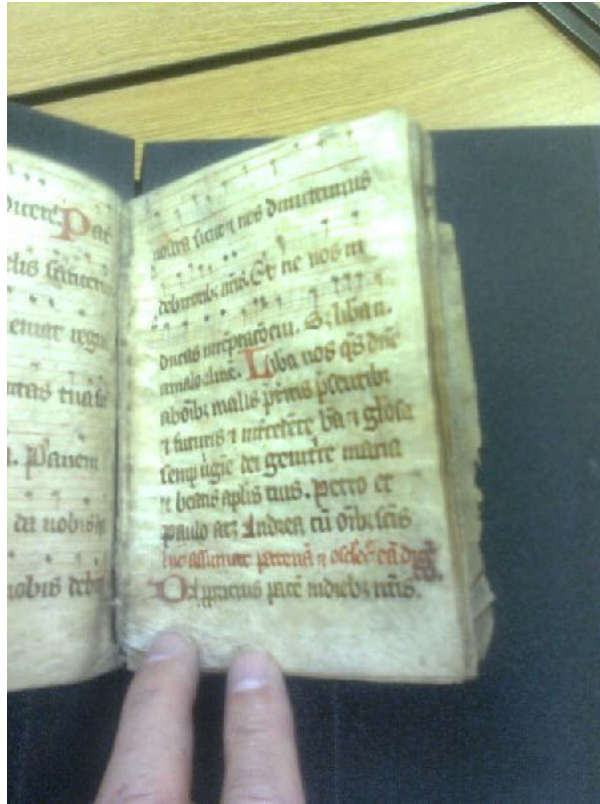 dicere. Pat
elis sanctificetur
eniat regnu
untas tua si
. Panem
da nobis ho
nobis debi
nostra sicut ⁊ nos dimittimus
debitorib; nris. Et ne nos in
ducas in teptatioem. S; liba n.
a malo. ame. Liba nos qs dne
ab oib; malis pritis psentib;
⁊ futuris ⁊ intcedete bta ⁊ gliosa
semp ugie dei genitrice maria
et beatis aplis tuis. petro et
paulo atz Andrea cu oib; scis
hic assumat patena ⁊ osclet ea
Da ppicius pace in dieb; nris.